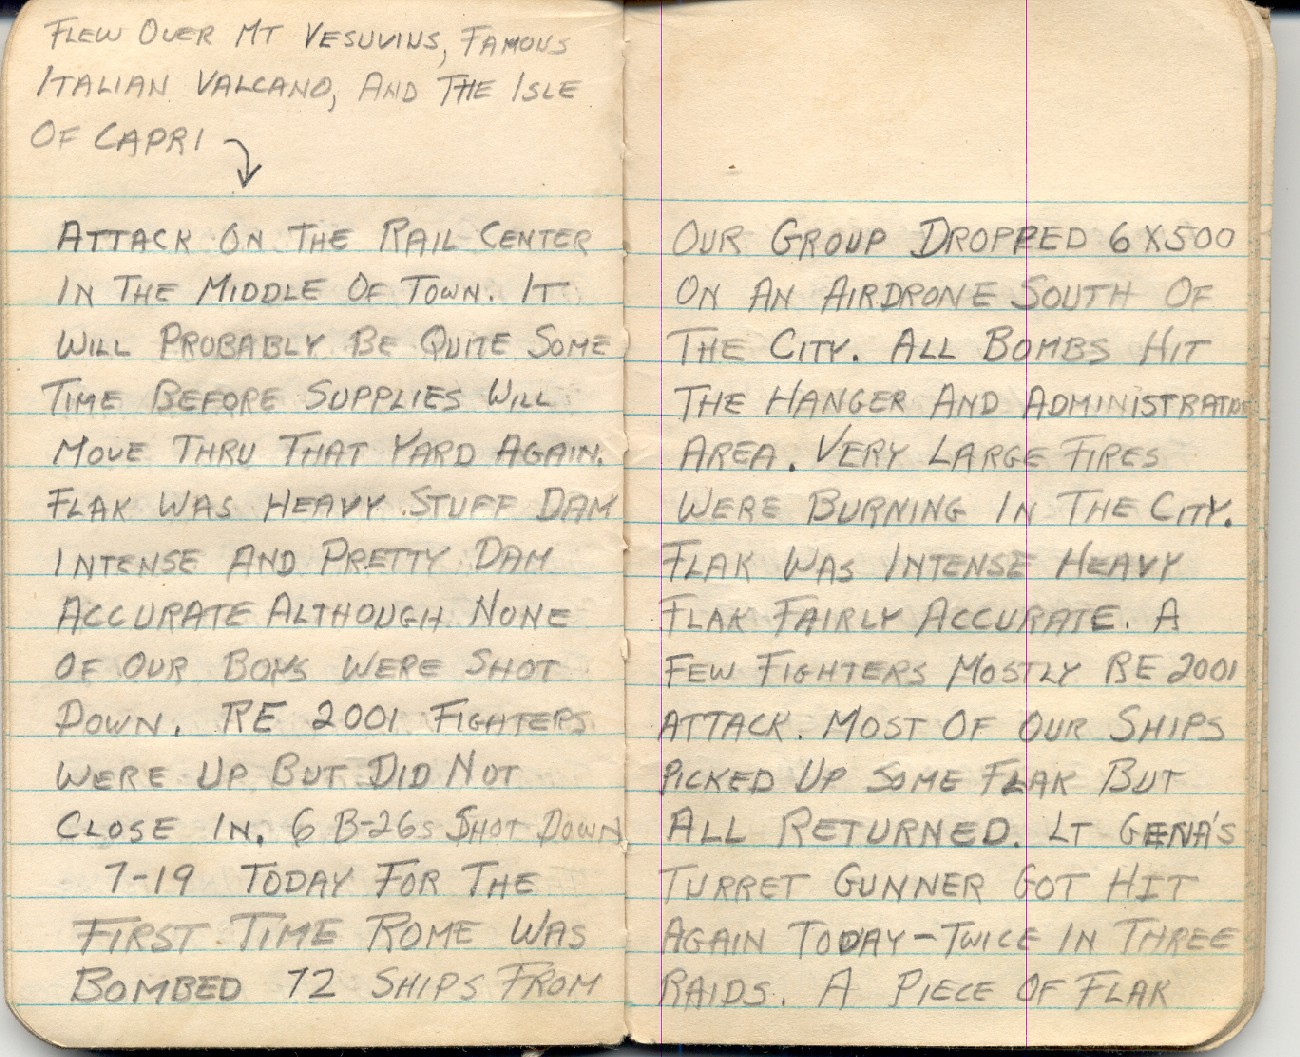 FLEW OVER MT VESUVINS, FAMOUS
ITALIAN VALCANO, AND THE ISLE
OF CAPRI
ATTACK ON THE RAIL CENTER
IN THE MIDDLE OF TOWN. IT
WILL PROBABLY BE QUITE SOME
TIME BEFORE SUPPLIES WILL
MOVE THRU THAT YARD AGAIN.
FLAK WAS HEAVY STUFF DAM
INTENSE AND PRETTY DAM
ACCURATE ALTHOUGH NONE
OF OUR BOYS WERE SHOT
DOWN. RE 2001 FIGHTERS
WERE UP BUT DID NOT
CLOSE IN. 6 B-26S SHOT DOWN
7-19 TODAY FOR THE
FIRST TIME ROME WAS
BOMBED 72 SHIPS FROM
OUR GROUP DROPPED 6X500
ON AN AIRDRONE SOUTH OF
THE CITY. ALL BOMBS HIT
THE HANGER AND ADMINISTRATION
AREA. VERY LARGE FIRES
WERE BURNING IN THE CITY.
FLAK WAS INTENSE HEAVY
FLAK FAIRLY ACCURATE. A
FEW FIGHTERS MOSTLY RE 2001
ATTACK. MOST OF OUR SHIPS
PICKED UP SOME FLAK BUT
ALL RETURNED. LT GENA'S
TURRET GUNNER GOT HIT
AGAIN TODAY-TWICE IN THREE
RAIDS. A PIECE OF FLAK